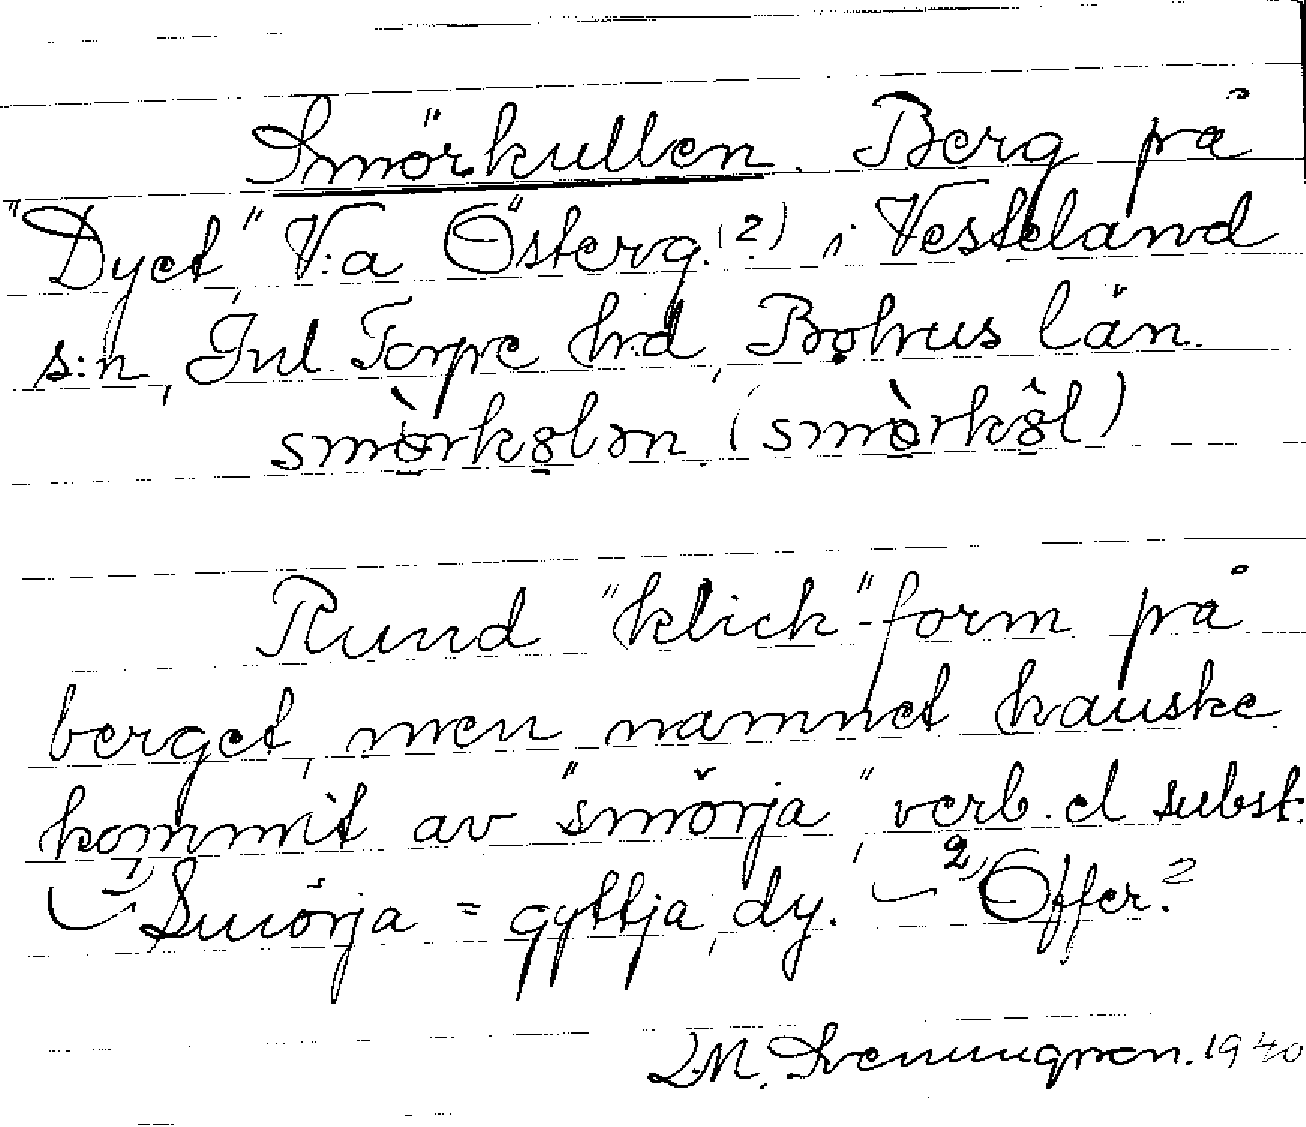 Smörkullen. Berg på
"Dyet", V:a Österg. (?) i Vesteland
s:n, Inl Torpe hrd, Bohus län.
smòrkolən. (smòrkôl)
Rund "klick"-form på
berget, men namnet kanske
kommit av "smörja", verb. el subst.
1) Smörja = gyttja, dy. — 2) Offer?
L.M. Svenungsson. 1940